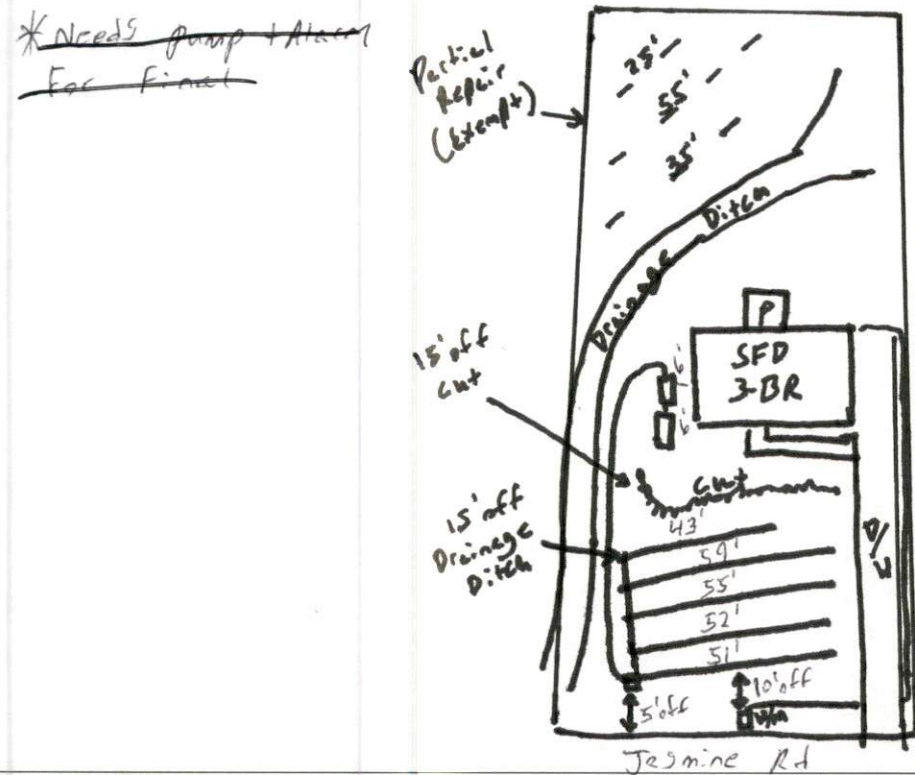 * Needs pump + Alarm
For Final
Partial
Repair
(Exempt)
25'
55'
35'
Drainage Ditch
P
SFD
3-BR
6'
6'
15' off
cut
cut
15' off
Drainage
Ditch
43'
59'
55'
52'
51'
D/W
5' off
10' off
W/M
Jasmine Rd